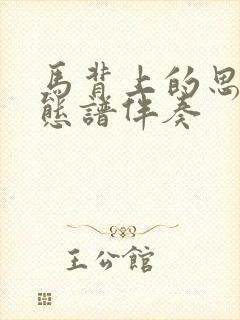 馬背上的思
態譜伴奏
王公館